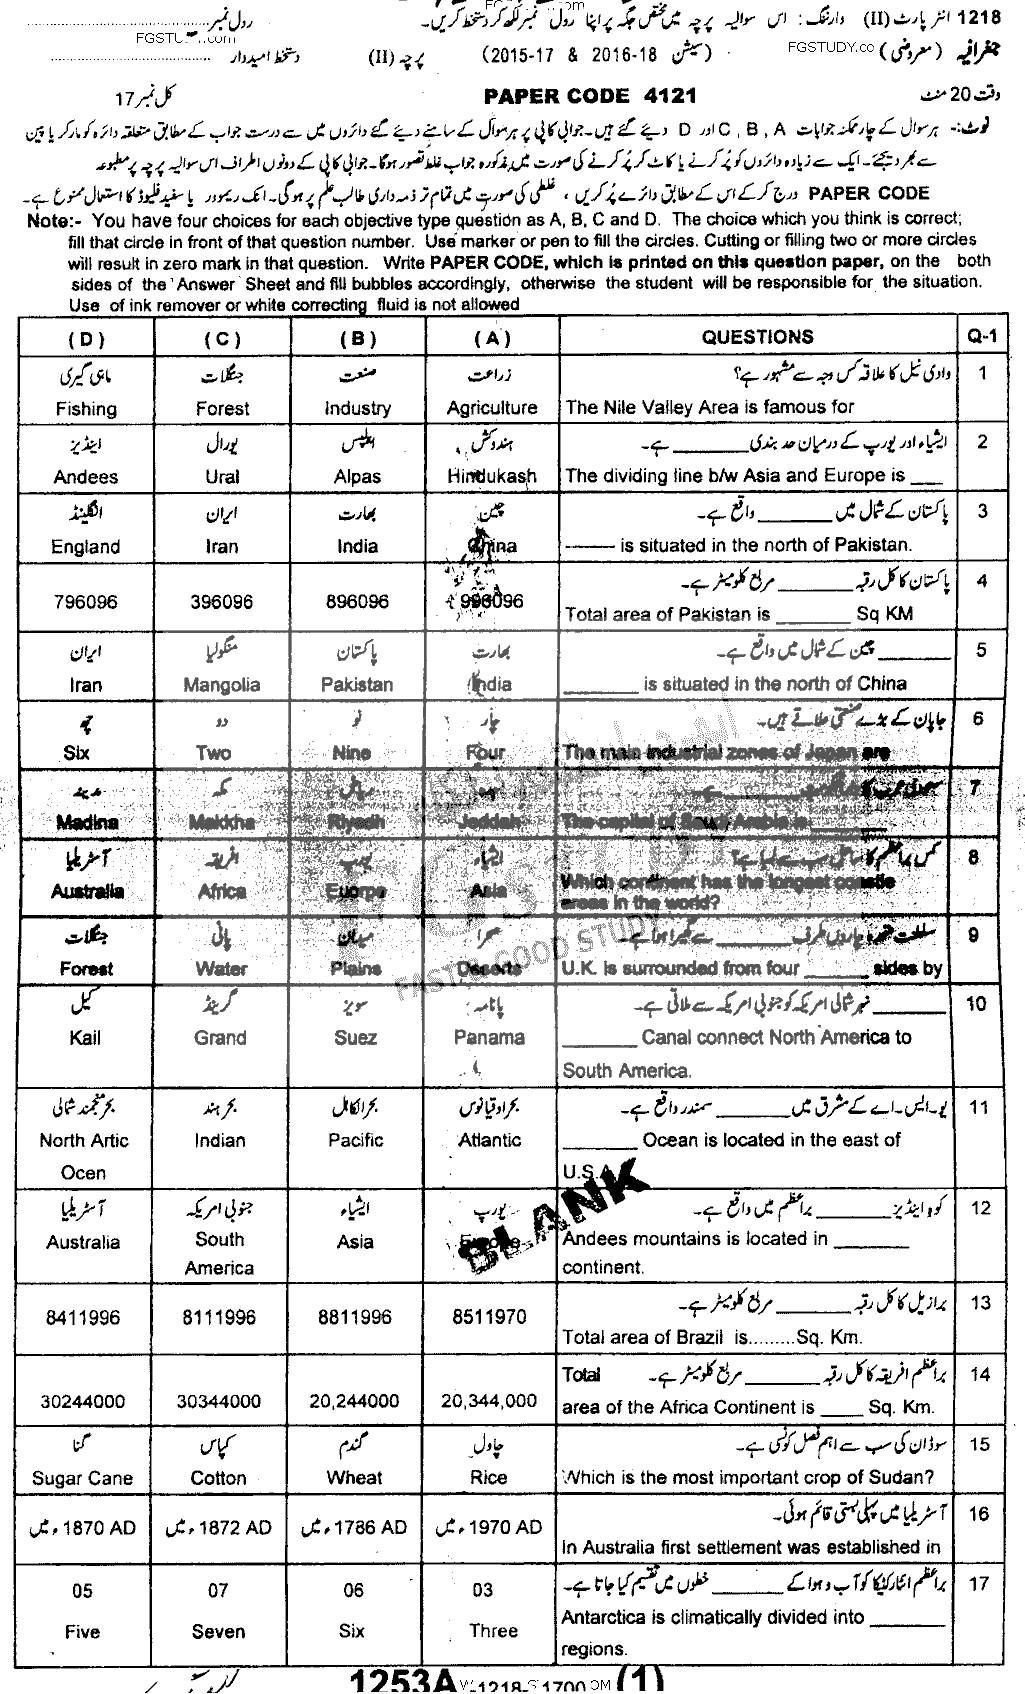 1218 انٹر پارٹ (II) وارننگ: اس سوالیہ پرچہ میں مختص جگہ پر اپنا رول نمبر لکھ کر دستخط کریں۔ رول نمبر
FGSTUDY.com
جغرافیہ (معروضی) (سیشن 2015-17 & 2016-18) پرچہ (II) دستخط امیدوار
وقت 20 منٹ PAPER CODE 4121 کل نمبر 17
نوٹ:- ہر سوال کے چار ممکنہ جوابات A ، B ، C اور D دیئے گئے ہیں۔ جوابی کاپی پر ہر سوال کے سامنے دیئے گئے دائروں میں سے درست جواب کے مطابق متعلقہ دائرہ کو مارکر یا پین
سے بھر دیجئے۔ ایک سے زیادہ دائروں کو پُر کرنے یا کاٹ کر پُر کرنے کی صورت میں مذکورہ جواب غلط تصور ہوگا۔ جوابی کاپی کے دونوں اطراف اس سوالیہ پرچہ پر مطبوعہ
PAPER CODE درج کر کے اس کے مطابق دائرے پُر کریں ، غلطی کی صورت میں تمام تر ذمہ داری طالب علم پر ہوگی۔ انک ریموور یا سفید فلیوڈ کا استعمال ممنوع ہے۔
Note:- You have four choices for each objective type question as A, B, C and D. The choice which you think is correct;
fill that circle in front of that question number. Use marker or pen to fill the circles. Cutting or filling two or more circles
will result in zero mark in that question. Write PAPER CODE, which is printed on this question paper, on the both
sides of the Answer Sheet and fill bubbles accordingly, otherwise the student will be responsible for the situation.
Use of ink remover or white correcting fluid is not allowed
(D) (C) (B) (A) QUESTIONS Q-1
ماہی گیری جنگلات صنعت زراعت وادی نیل کا علاقہ کس وجہ سے مشہور ہے؟ 1
Fishing Forest Industry Agriculture The Nile Valley Area is famous for
اینڈیز یورال ایلپس ہندوکش ایشیاء اور یورپ کے درمیان حد بندی ______ ہے۔ 2
Andees Ural Alpas Hindukash The dividing line b/w Asia and Europe is ___
انگلینڈ ایران بھارت چین پاکستان کے شمال میں ______ واقع ہے۔ 3
England Iran India China ——— is situated in the north of Pakistan.
پاکستان کا کل رقبہ ______ مربع کلومیٹر ہے۔ 4
796096 396096 896096 996096 Total area of Pakistan is ______ Sq KM
ایران منگولیا پاکستان بھارت ______ چین کے شمال میں واقع ہے۔ 5
Iran Mangolia Pakistan India ______ is situated in the north of China
چھ دو نو چار جاپان کے بڑے صنعتی علاقے ہیں۔ 6
Six Two Nine Four The main industrial zones of Japan are
مدینہ مکہ 7
Madina Makkha Riyadh Jeddah The capital of Saudi Arabia is ______
آسٹریلیا افریقہ یورپ ایشیاء کس براعظم کا ساحل سب سے لمبا ہے؟ 8
Australia Africa Euorpe Asia Which continent has the longest coastle
areas in the world?
جنگلات پانی میدان صحرا 9
Forest Water Plains Deserts U.K. is surrounded from four ______ sides by
کیل گرینڈ سویز پانامہ ______ نہر شمالی امریکہ کو جنوبی امریکہ سے ملاتی ہے۔ 10
Kail Grand Suez Panama ______ Canal connect North America to
South America.
بحر منجمد شمالی بحر ہند بحر الکاہل بحر اوقیانوس یو۔ایس۔اے کے مشرق میں ______ سمندر واقع ہے۔ 11
North Artic Indian Pacific Atlantic ______ Ocean is located in the east of
Ocen U.S.A
BLANK
آسٹریلیا جنوبی امریکہ ایشیاء یورپ کوہ اینڈیز ______ براعظم میں واقع ہے۔ 12
Australia South Asia Europe Andees mountains is located in ______
America continent.
برازیل کا کل رقبہ ______ مربع کلومیٹر ہے۔ 13
8411996 8111996 8811996 8511970 Total area of Brazil is.........Sq. Km.
براعظم افریقہ کا کل رقبہ ______ مربع کلومیٹر ہے۔ Total 14
30244000 30344000 20,244000 20,344,000 area of the Africa Continent is ____ Sq. Km.
گنا کپاس گندم چاول سوڈان کی سب سے اہم فصل کونسی ہے۔ 15
Sugar Cane Cotton Wheat Rice Which is the most important crop of Sudan?
آسٹریلیا میں پہلی بستی قائم ہوئی۔ 16
1870 AD ء میں 1872 AD ء میں 1786 AD ء میں 1970 AD ء میں In Australia first settlement was established in
05 07 06 03 براعظم انٹارکٹیکا کو آب و ہوا کے ______ خطوں میں تقسیم کیا جاتا ہے۔ 17
Five Seven Six Three Antarctica is climatically divided into ______
regions.
1253A 1218 1700 (1)